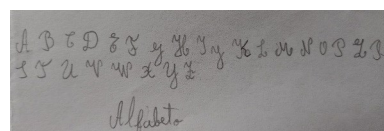 A B C D E F G H I J K L M N O P Q R
S T U V W X Y Z
Alfabeto